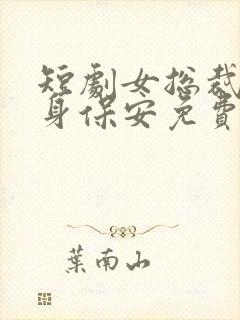 短劇女总裁
身保安免費
葉南山